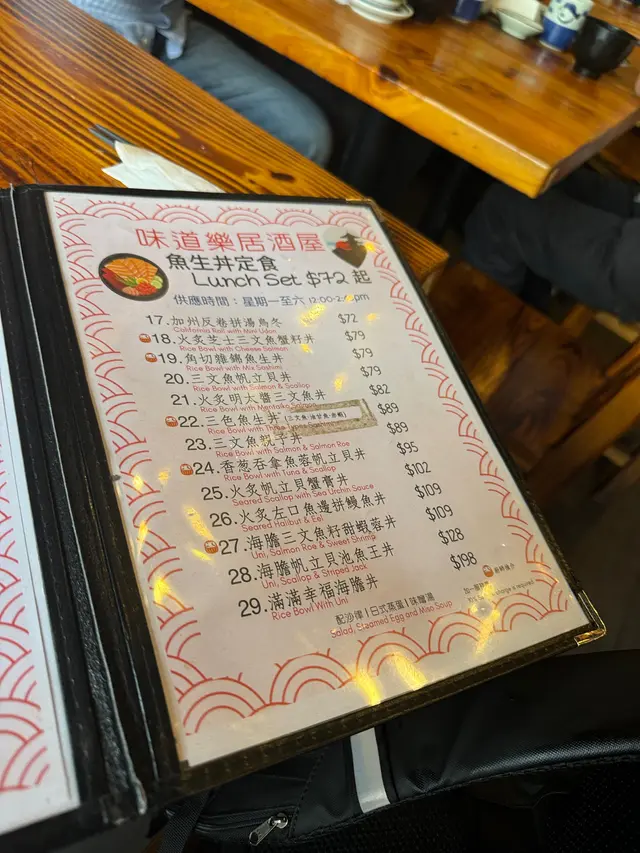 味道樂居酒屋
魚生丼定食
Lunch Set $72 起
供應時間：星期一至六 12:00-2: pm
17.加州反卷拼湯烏冬 $72
California Roll with Mini Udon
18.火炙芝士三文魚蟹籽丼 $79
Rice Bowl with Cheese Salmon
19.角切雜錦魚生丼 $79
Rice Bowl with Mix Sashimi
20.三文魚帆立貝丼 $79
Rice Bowl with Salmon & Scallop
21.火炙明太醬三文魚丼 $82
Rice Bowl with Mentaiko
22.三色魚生丼 $89
Rice Bowl with
23.三文魚親子丼 $89
Rice Bowl with Salmon & Salmon Roe
24.香葱吞拿魚蓉帆立貝丼 $95
Rice Bowl with Tuna & Scallop
25.火炙帆立貝蟹膏丼 $102
Seared Scallop with Sea Urchin Sauce
26.火炙左口魚邊拼鰻魚丼 $109
Seared Halibut & Eel
27.海膽三文魚籽甜蝦蓉丼 $109
Uni, Salmon Roe & Sweet Shrimp
28.海膽帆立貝池魚王丼 $128
Uni, Scallop & Striped Jack
29.滿滿幸福海膽丼 $198
Rice Bowl With Uni
廚師推介
配沙律 | 日式蒸蛋 | 味噌湯
Salad, Steamed Egg and Miso Soup
加一服務費
charge is required